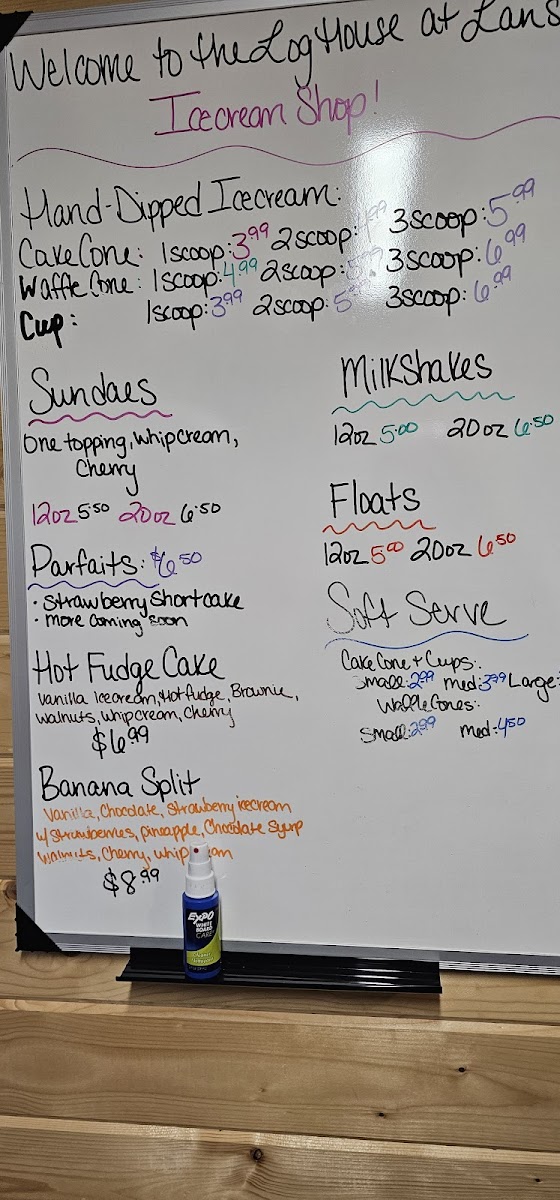 Welcome to the Log House at Lans
Icecream Shop!
Hand-Dipped Icecream:
Cake Cone: 1 scoop: 3.99 2 scoop: 3 scoop: 5.99
Waffle Cone: 1 scoop: 4.99 2 scoop: 3 scoop: 6.99
Cup: 1 scoop: 3.99 2 scoop: 3 scoop: 6.99
Sundaes
One topping, whip cream,
Cherry
12oz 5.50 20oz 6.50
Parfaits: $6.50
• Strawberry Shortcake
• More coming soon
Hot Fudge Cake
Vanilla Icecream, Hot fudge, Brownie,
Walnuts, whip cream, Cherry
$6.99
Banana Split
Vanilla, Chocolate, Strawberry icecream
w/ Strawberries, pineapple, Chocolate Syrup
Walnuts, Cherry, whip
$8.99
Milkshakes
12oz 5.00 20oz 6.50
Floats
12oz 5.00 20oz 6.50
Soft Serve
Cake Cone + Cups:
Small: 2.99 med: 3.99 Large:
Waffle Cones:
Small: 2.99 med: 4.50
EXPO
WHITE
BOARD
CARE